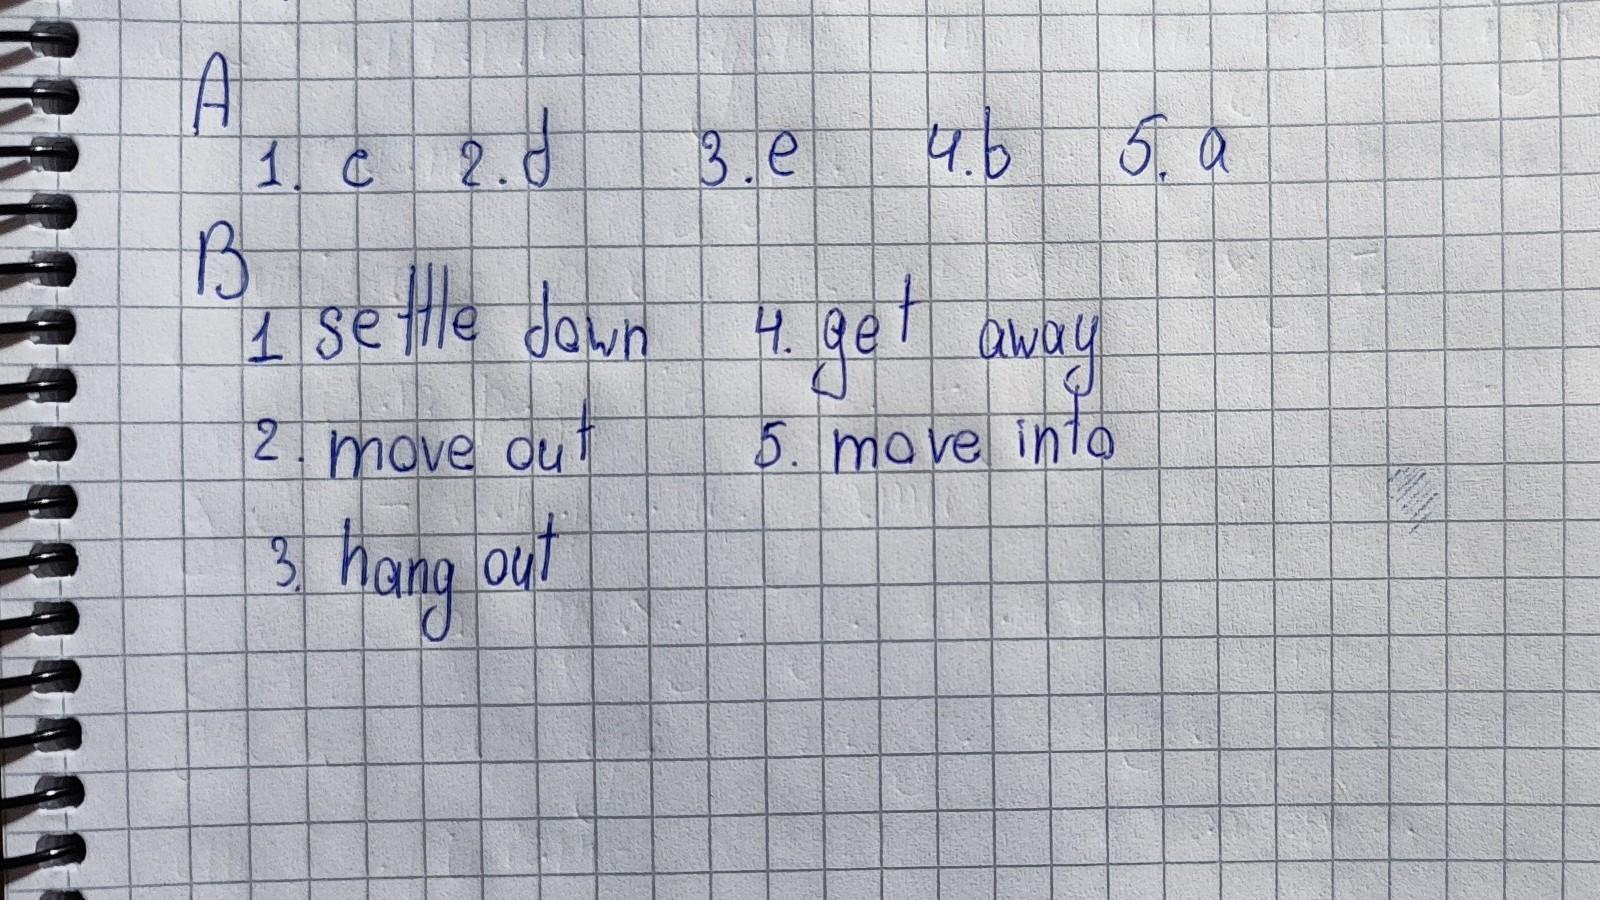 A
1. c 2. d 3. e 4. b 5. a
B
1 settle down 4. get away
2. move out 5. move into
3. hang out